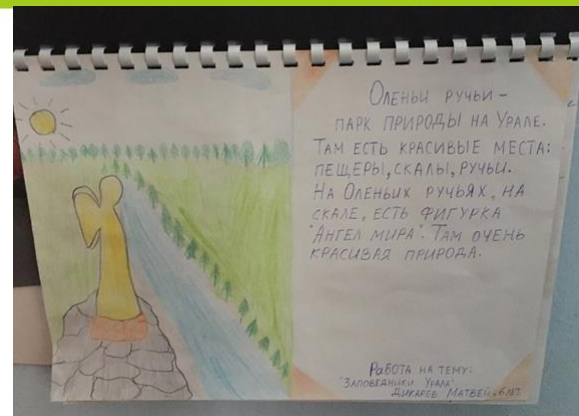 Оленьи ручьи –
парк природы на Урале.
Там есть красивые места:
пещеры, скалы, ручьи.
На Оленьих ручьях, на
скале, есть фигурка
"Ангел мира". Там очень
красивая природа.
Работа на тему:
"Заповедники Урала"
Дикарев Матвей, 6 лет.